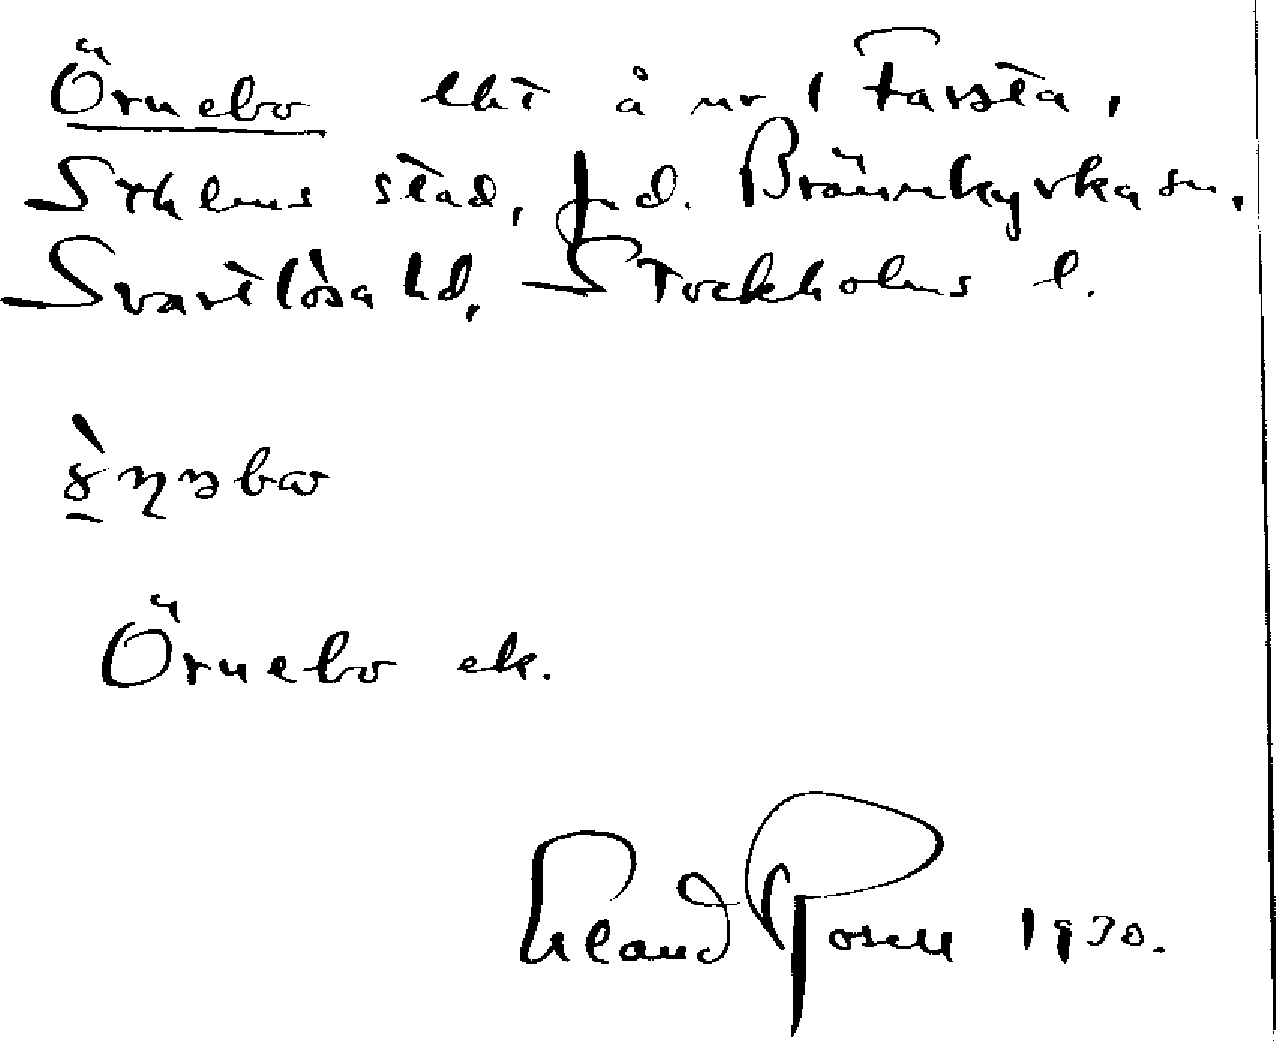 Örnebo lht å nr 1 Farsta,
Sthlms stad, f.d. Brännkyrka sn,
Svartlösa hd, Stockholms l.
Örnebo ek.
Erland Rosell 1930.